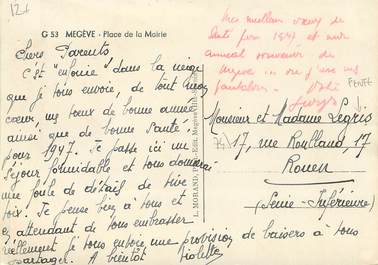 12
G 53 MEGÈVE - Place de la Mairie
Chers Parents
C'est "enfouie" dans la neige
que je vous envoie, de tout mon
cœur, mes vœux de bonne année
ainsi que de bonne santé
pour 1947. Je passe ici un
séjour formidable et vous donnerai
une foule de détails de vive
voix. Je pense bien à vous et
en attendant de vous embrasser
réellement je vous envoie une provision de baisers à vous
partager. A bientôt Violette
Mes meilleurs vœux de
santé pour 1947 et mon
amical souvenir de
Megève
L. MORAND
Monsieur et Madame Legris
17, rue Roulland, 17
Rouen
(Seine-Inférieure)